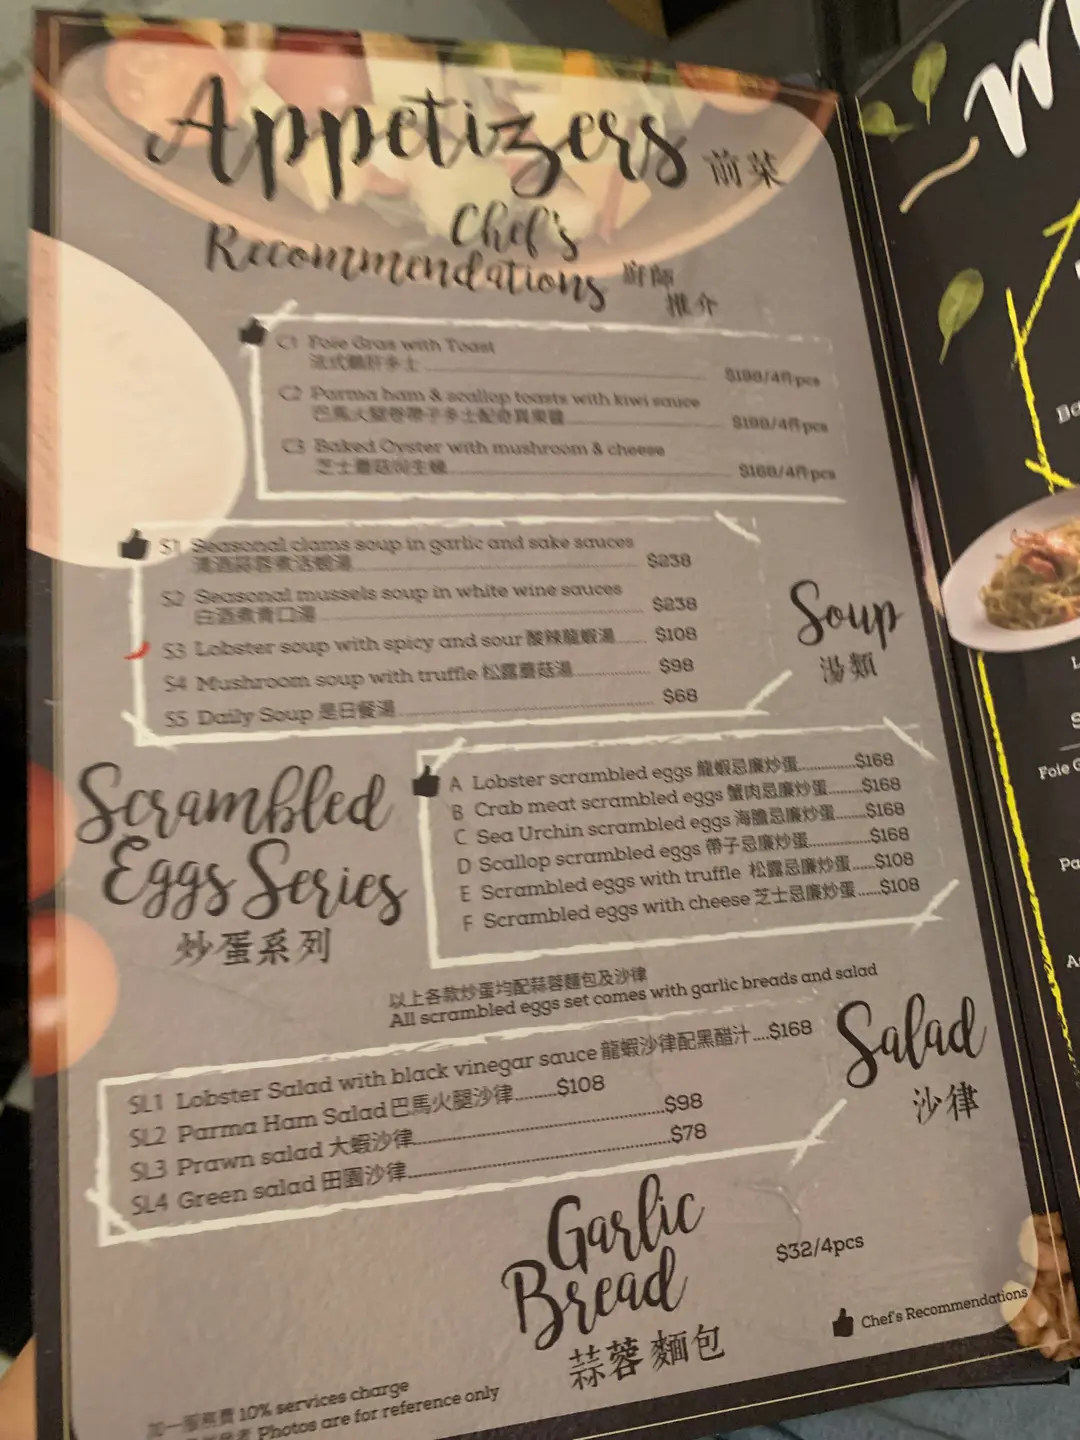 Appetizers 前菜
Chef's
Recommendations 廚師
推介
C1 Foie Gras with Toast
法式鵝肝多士
C2 Parma ham & scallop toasts with kiwi sauce
巴馬火腿卷帶子多士配奇異果醬
C3 Baked Oyster with mushroom & cheese
$168/4件pcs
S1 Seasonal clams soup in garlic and sake sauces
清酒蒜蓉煮活蜆湯 $238
S2 Seasonal mussels soup in white wine sauces
白酒煮青口湯 $238
S3 Lobster soup with spicy and sour 酸辣龍蝦湯 $108
S4 Mushroom soup with truffle 松露蘑菇湯 $98
S5 Daily Soup 是日餐湯 $68
Soup
湯類
Scrambled
Eggs Series
炒蛋系列
A Lobster scrambled eggs 龍蝦忌廉炒蛋 $168
B Crab meat scrambled eggs 蟹肉忌廉炒蛋 $168
C Sea Urchin scrambled eggs 海膽忌廉炒蛋 $168
D Scallop scrambled eggs 帶子忌廉炒蛋 $168
E Scrambled eggs with truffle 松露忌廉炒蛋 $108
F Scrambled eggs with cheese 芝士忌廉炒蛋 $108
以上各款炒蛋均配蒜蓉麵包及沙律
All scrambled eggs set comes with garlic breads and salad
SL1 Lobster Salad with black vinegar sauce 龍蝦沙律配黑醋汁 $168
SL2 Parma Ham Salad 巴馬火腿沙律 $108
SL3 Prawn salad 大蝦沙律 $98
SL4 Green salad 田園沙律 $78
Salad
沙律
Garlic
Bread
蒜蓉麵包
$32/4pcs
Chef's Recommendations
加一服務費 10% services charge
Photos are for reference only
Foie G